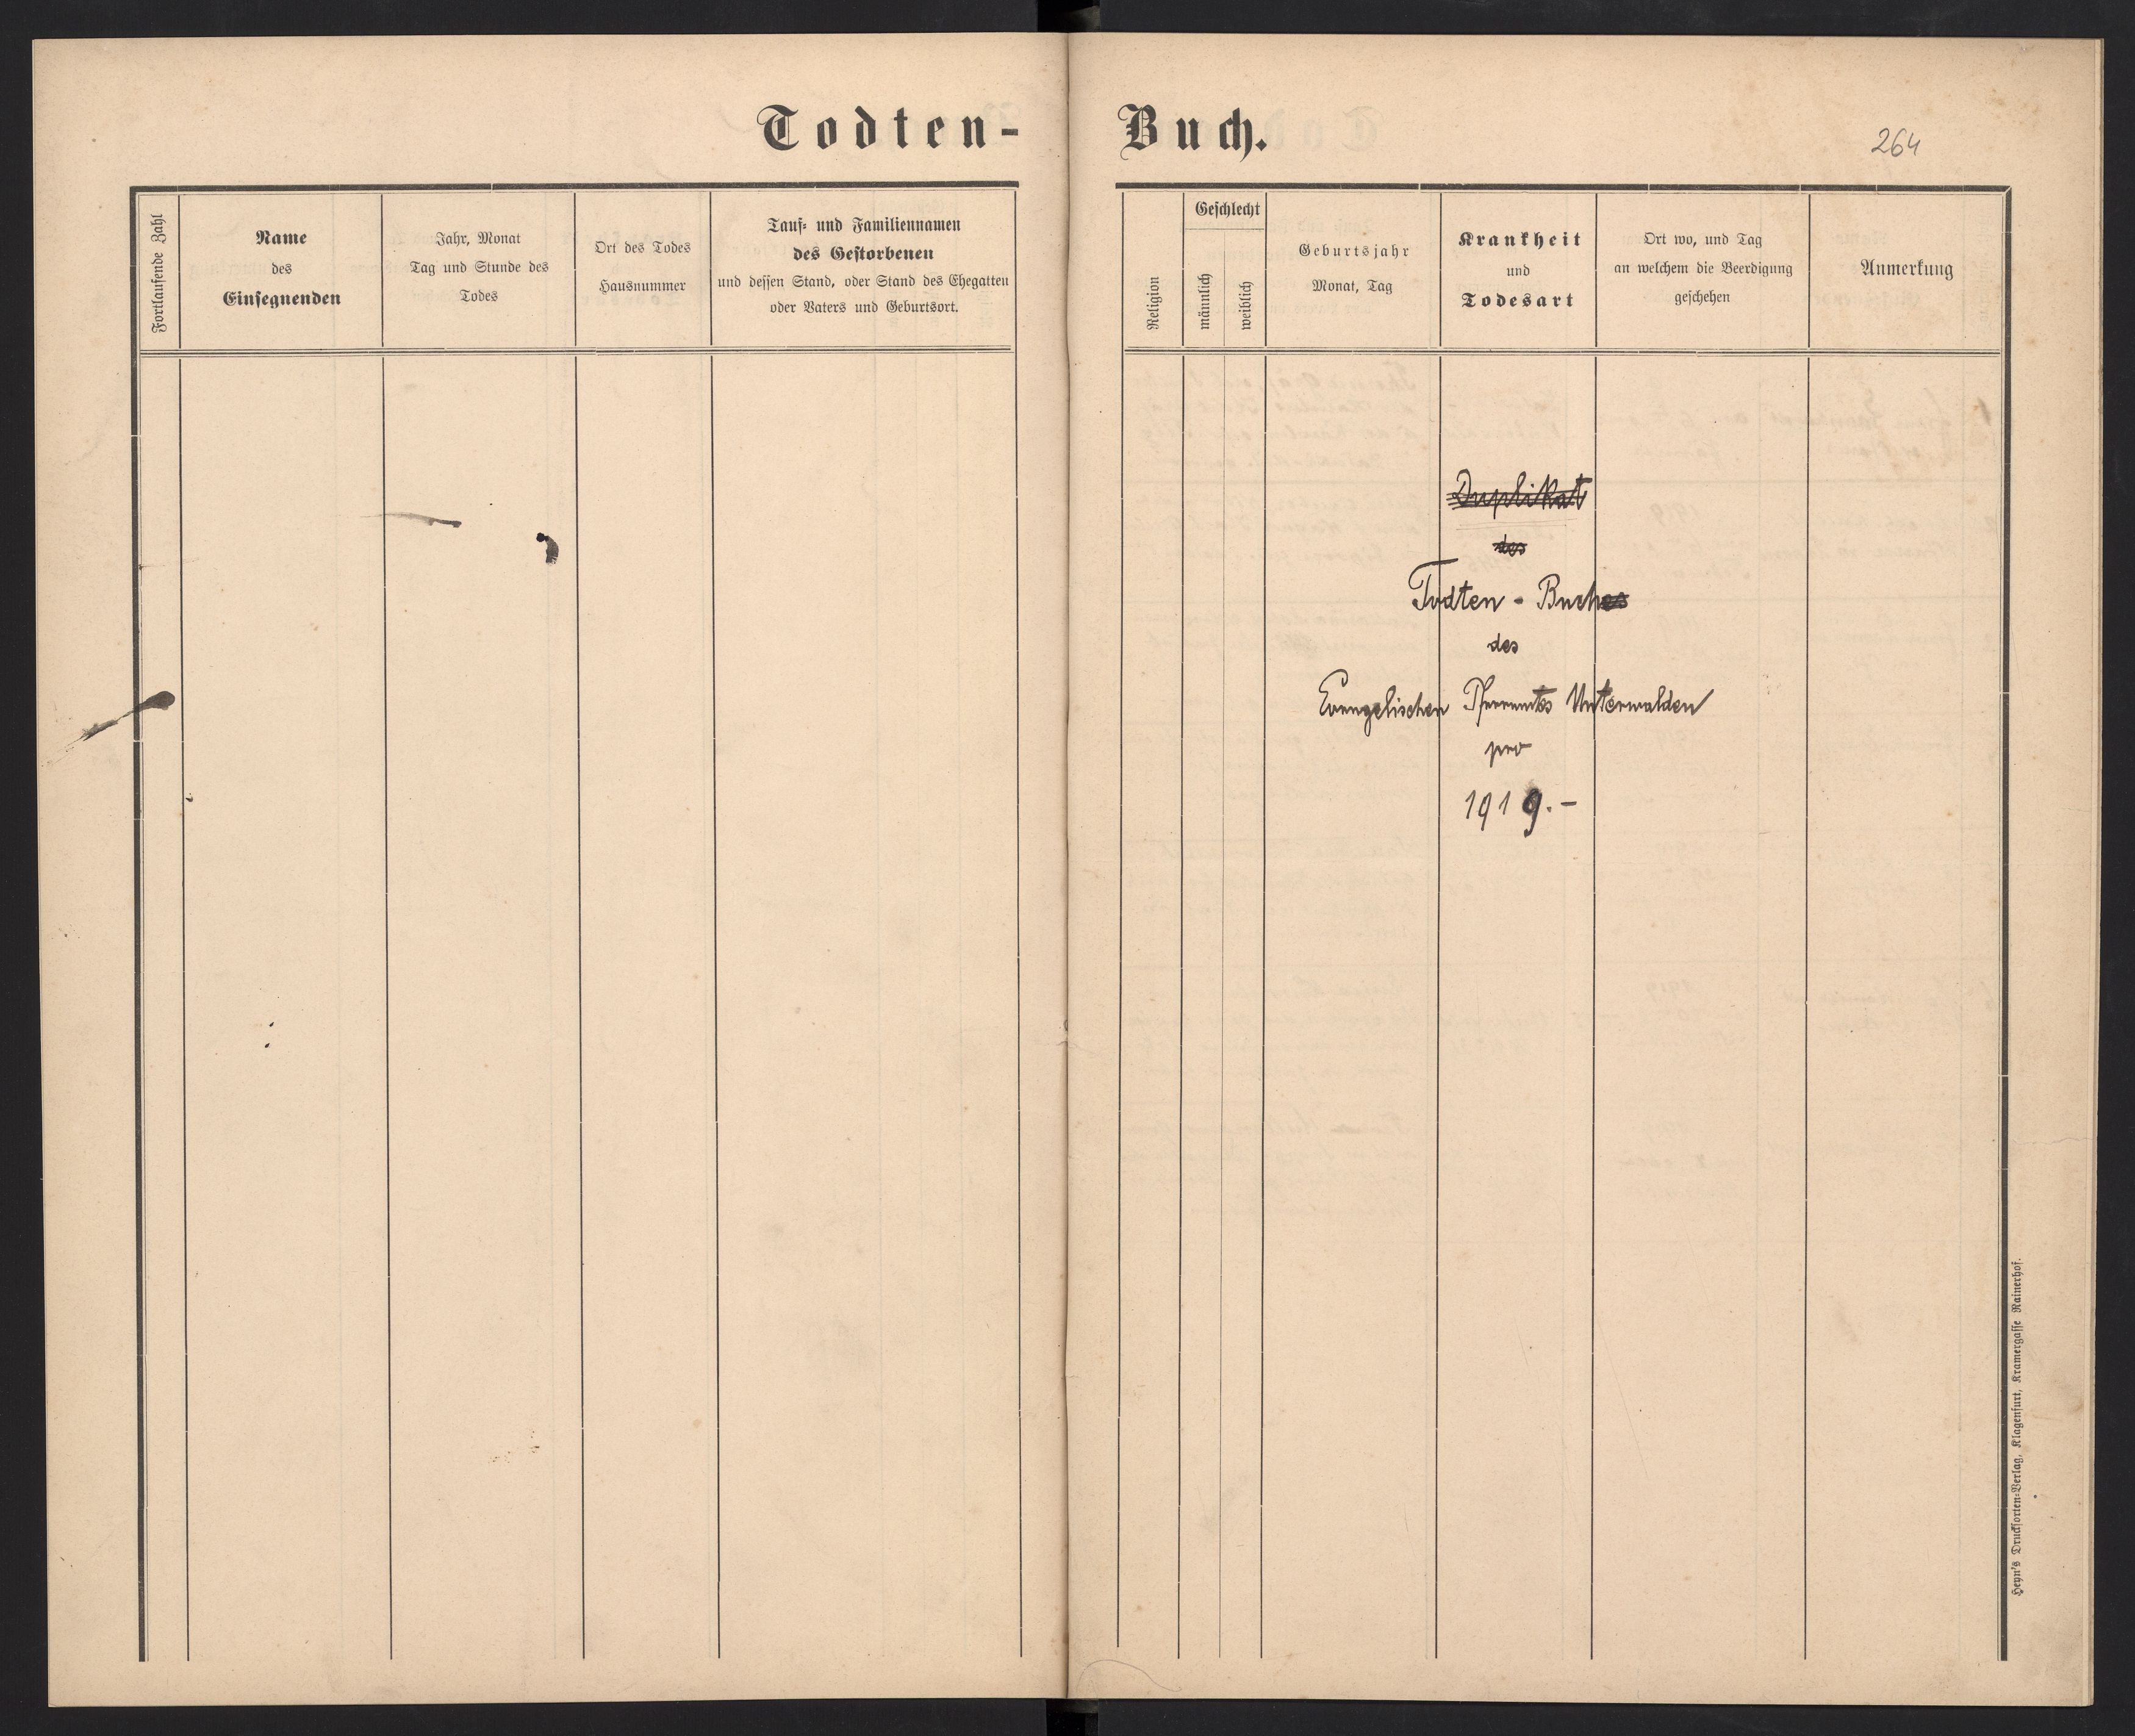 Todten-Buch.
264
Fortlaufende Zahl
Name
des
Einsegnenden
Jahr, Monat
Tag und Stunde des
Todes
Ort des Todes
Hausnummer
Tauf- und Familiennamen
des Gestorbenen
und dessen Stand, oder Stand des Ehegatten
oder Vaters und Geburtsort.
Religion
Geschlecht
männlich
weiblich
Geburtsjahr
Monat, Tag
Krankheit
und
Todesart
Ort wo, und Tag
an welchem die Beerdigung
geschehen
Anmerkung
Duplikat
des
Todten - Buches
des
Evangelischen Pfarramtes Unterwalden
pro
1919.-
Heyn's Drucksorten-Verlag, Klagenfurt, Kramergasse Rainerhof.